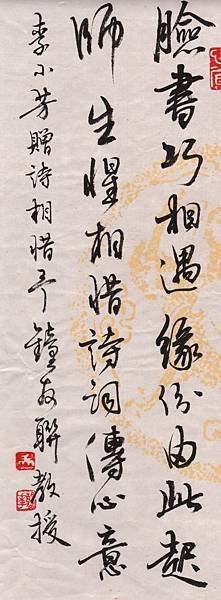 臉書巧相遇緣份由此起
師生惺相惜詩詞傳心意
李小芳贈詩相惜予鐘友聯教授